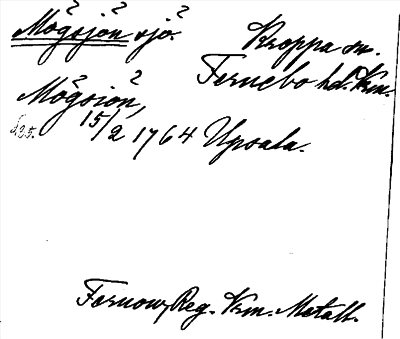 Mögsjön sjö.
Kroppa sn.
Fernebo hd. Vrm.
Mögsiön,
15/2 1764 Upsala.
s. 25.
Fernow, Reg. Vrm. Metall.